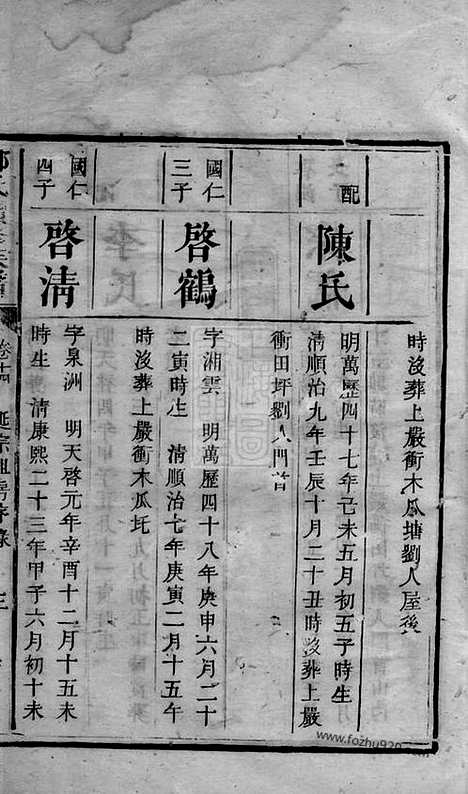 時沒葬上嚴衝木瓜塘劉人屋後
配
陳氏
明萬歷四十七年己未五月初五子時生
清順治九年壬辰十月二十丑時沒葬上嚴
衝田坪劉人門首
國仁
三子
啓鶴
字湘雲 明萬歷四十八年庚申六月二十
二寅時生 清順治七年庚寅二月十五午
時沒葬上嚴衝木瓜坵
國仁
四子
啓清
字泉洲 明天啓元年辛酉十二月十五未
時生 清康熙二十三年甲子六月初十未
卷十四
三
www.fozhu920.com